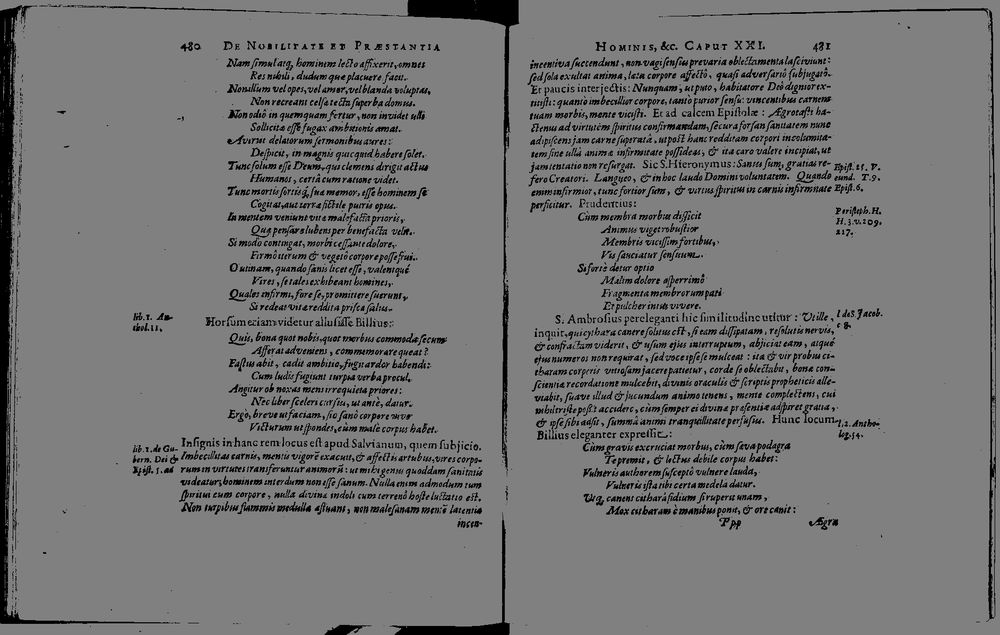 480 DE NOBILITATE ET PRÆSTANTIA
Nam simul atq; hominem lecto affixerit, omnes
Res nihili, dudum quæ placuere facit.
Non illum vel opes, vel amor, vel blanda voluptas,
Non recreant celsa tecta superba domus.
Non odio in quemquam fertur, non invidet ulli
Sollicitæ esse fugax ambitionis amat.
Avirut delatorum sermonibus aures:
Despicit, in magnis quicquid habere solet.
Tunc solum esse Deum, qui clementi dirigit actus
Humanos, certa cum ratione videt.
Tunc mortis sortisq; suæ memor, esse hominem se
Cogitat, aut terræ fictile putris opus.
In mentem veniunt vitæ malefacta prioris,
Quæ pensare lubens per benefacta velit.
Si modo contingat, morbi cessante dolore,
Firmo iterum & vegeto corpore posse frui.
O utinam, quando sanis licet esse, valentque
Vires, se tales exhibeant homines,
Quales infirmi, fore se, promittere suerunt,
Si redeat vitæ reddita prisca salus.
lib. 1. An-
thol. 11.
Horsum etiam videtur allusisse Billius:
Quis, bona quot nobis, quot morbus commoda secum
Afferat adveniens, commemorare queat?
Fastus abit, cadit ambitio, fugit ardor habendi:
Cum ludis fugiunt turpia verba procul.
Angitur ob noxas mens irrequieta priores:
Nec liber sceleri cursus, ut ante, datur.
Ergò, breve ut faciam, sio sano corpore vivr
Victurum ut spondes, cùm male corpus habet.
lib. 1. de Gu-
bern. Dei &
Epist. 5. ad
Insignis in hanc rem locus est apud Salvianum, quem subjicio.
Imbecillitas carnis, mentis vigorē exacuit, & affectis artubus, vires corpo-
rum in virtutes transferuntur animorū: ut mihi genus quoddam sanitatis
videatur, hominem interdum non esse sanum. Nulla enim admodum tum
spiritui cum corpore, nulla divinæ indoli cum terreno hoste luctatio est.
Non turpibus flammis medullæ æstuant, non malesanam mentē latentia
incen-
HOMINIS, &c. CAPUT XXI. 481
incentiva succendunt, non vagi sensus prevaria oblectamenta lasciviunt:
sed sola exultat anima, læta corpore affectō, quasi adversariō subjugatō.
Et paucis interjectis: Nunquam, ut puto, habitatore Deo dignior ex-
titisti: quanto imbecillior corpore, tanto purior sensu: vincentibus carnem
tuam morbis, mente vicisti. Et ad calcem Epistolæ: Ægrotasti ha-
ctenus ad virtutem spiritus confirmandam, secura forsan sanitatem nunc
adipiscens jam carne superatâ, ut post hanc redditam corpori incolumita-
tem sine ullâ animæ infirmitate possideas, & ita caro valere incipiat, ut
jam tentatio non resurgat. Sic S. Hieronymus: Sanus sum, gratias re-
fero Creatori. Langueo, & in hoc laudo Domini voluntatem. Quando
enim infirmior, tunc fortior sum, & virtus spiritus in carnis infirmitate
perficitur. Prudentius:
Epist. 25. V.
eund. T. 9.
Epist. 6.
Cùm membra morbus dissicit
Animus viget robustior
Membris vicissim fortibus,
Vis sauciatur sensuum.
Si forte detur optio
Malim dolore asperrimô
Fragmenta membrorum pati
Et pulcher intus vivere.
Peristeph. H.
H. 3. v. 209.
217.
S. Ambrosius pereleganti hic similitudine utitur: Ut ille,
inquit, qui cythara canere solitus est, si eam dissipatam, resolutis nervis,
& confractam viderit, & usum ejus interruptum, abjiciat eam, atque
ejus numeros non requirat, sed voce ipse se mulceat: ita & vir probus ci-
tharam corporis vitiosam jacere patietur, corde se oblectabit, bonæ con-
scientiæ recordatione mulcebit, divinis oraculis & scriptis propheticis alle-
viabit, suave illud & jucundum animo tenens, mente complectens, cui
nihil triste possit accidere, cùm semper ei divinæ præsentiæ adspiret gratia,
& ipse sibi adsit, summâ animi tranquillitate perfusus. Hunc locum
Billius eleganter expressit:
l. de S. Jacob.
c 8.
l. 2. Antho-
log. 54.
Cùm gravis excruciat morbus, cùm sæva podagra
Te premit, & lectus debile corpus habet:
Vulneris authorem suscepto vulnere lauda,
Vulneris ista tibi certa medela datur.
Utq, canent citharâ fidium si ruperit unam,
Mox citharam è manibus ponit, & ore canit:
Ppp Ægra